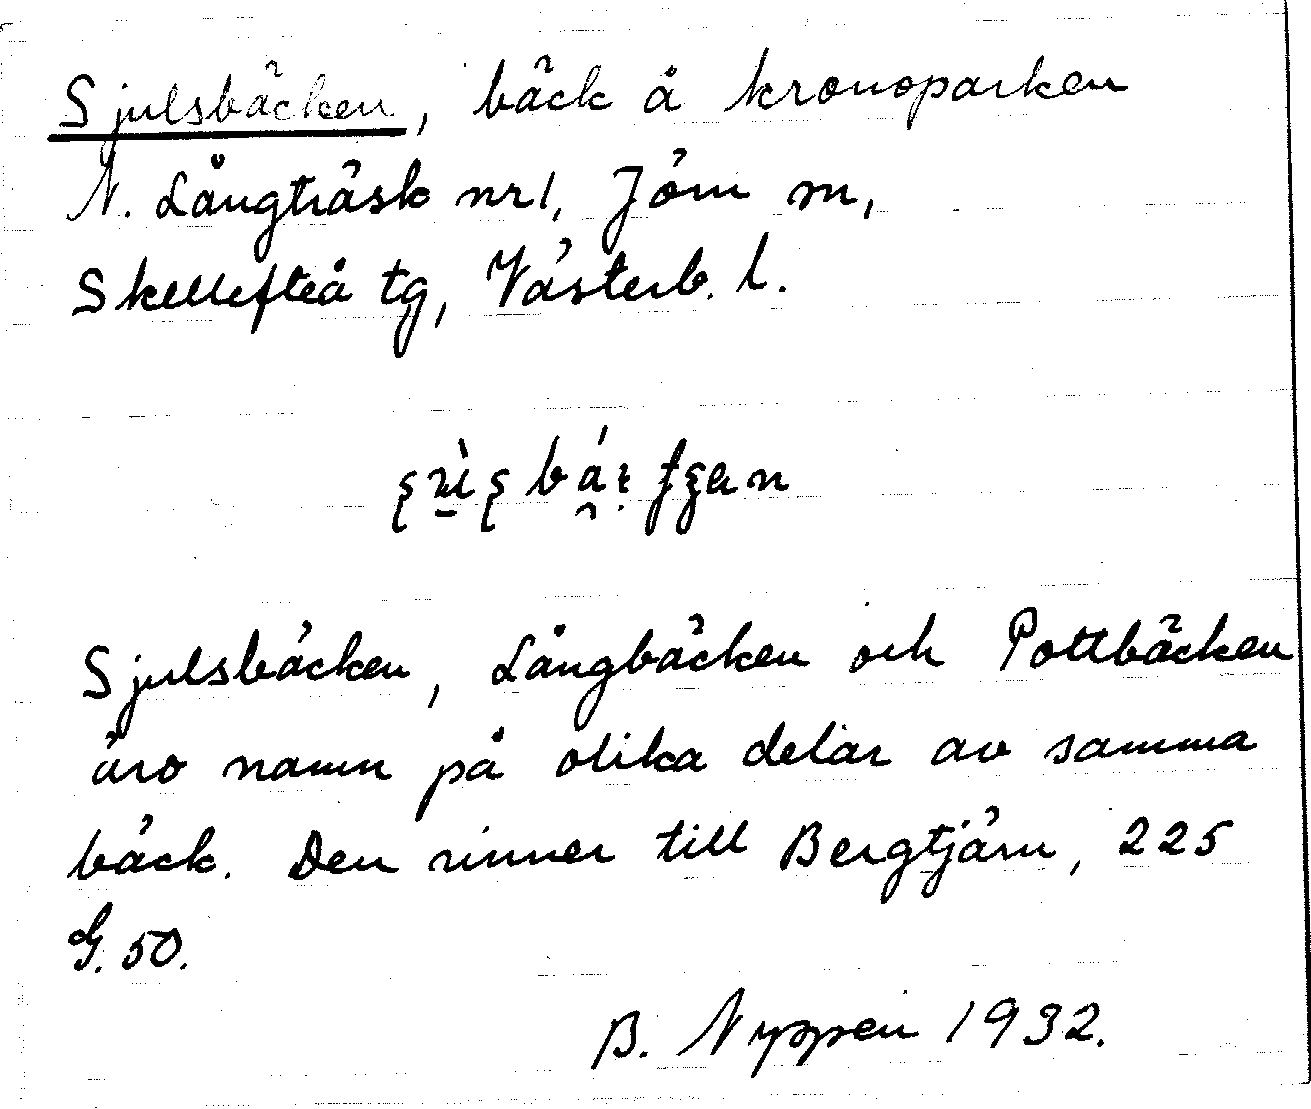 Sjulsbäcken, bäck å kronoparken
N. Långträsk nr 1, Jörn sn,
Skellefteå tg, Västerb. l.
Sjulsbäcken, Långbäcken och Pottbäcken
äro namn på olika delar av samma
bäck. Den rinner till Bergtjärn, 225
G. 50.
B. Nyppen 1932.